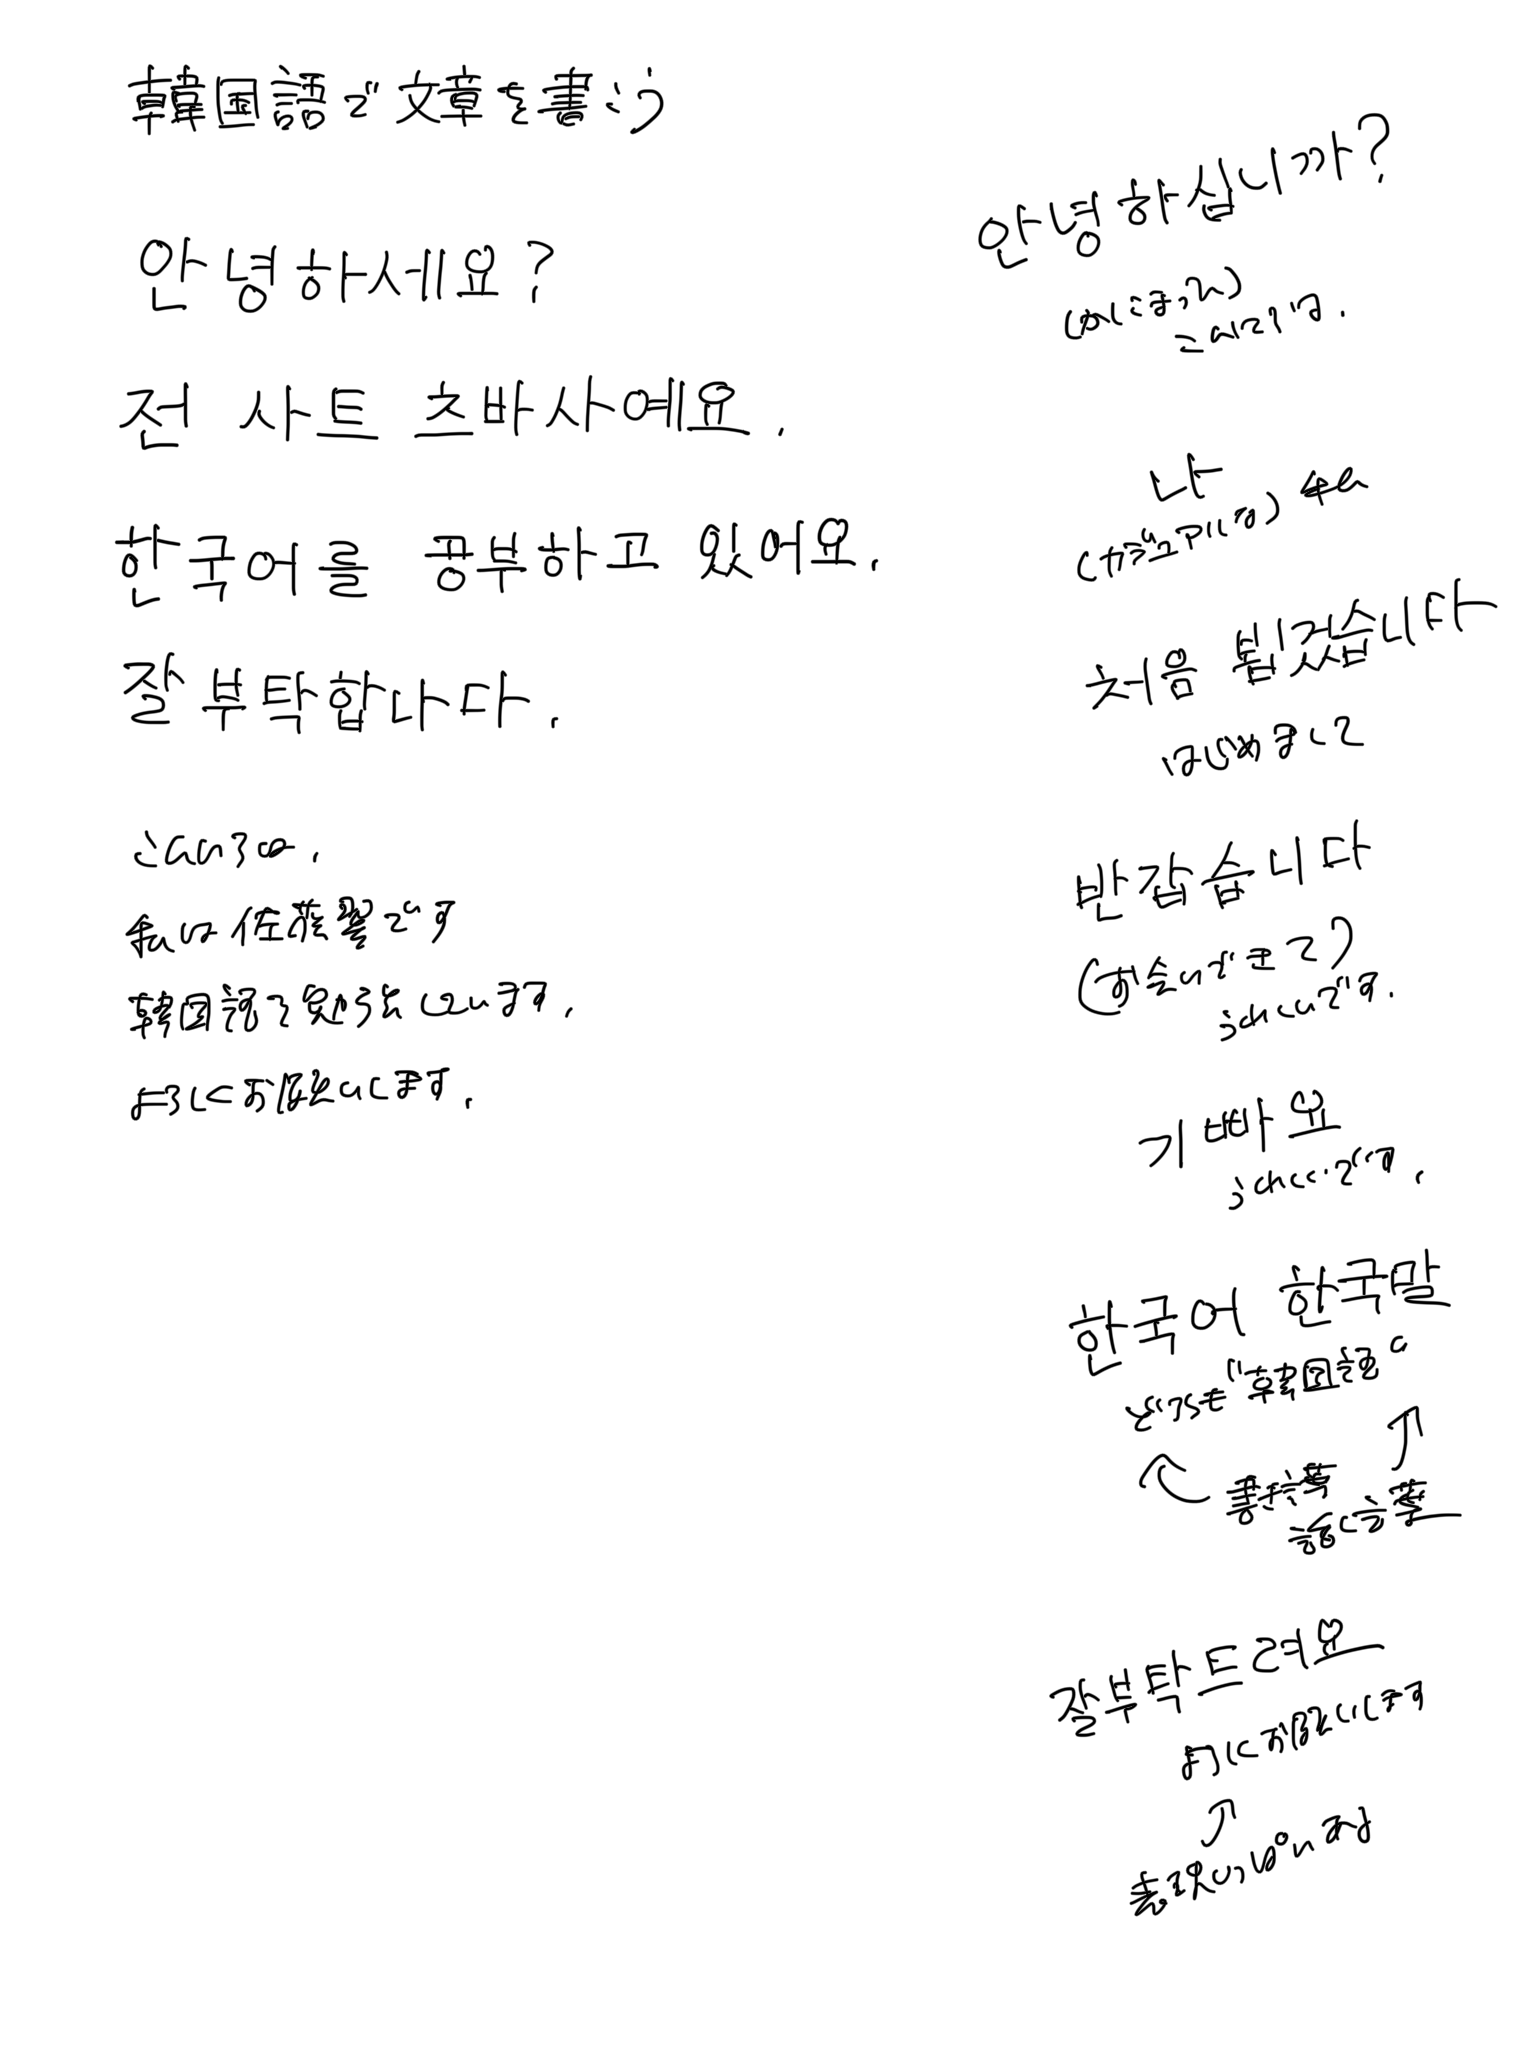 韓国語で文章を書こう
안녕하세요?
전 사트 츠바사에요.
한국어를 공부하고 있어요.
잘 부탁합나다.
こんにちは.
私は佐藤翼です
韓国語を勉強しています.
よろしくお願いします.
안녕하십니까?
(かしこまった)
こんにちは.
나
私
처음 뵙겠습니다
はじめまして
반갑습니다
(お会いできて)
うれしいです.
기빠요
うれしいです.
한국어 한국말
どっちも"韓国語"
書き言葉
話し言葉
잘부탁드려요
よろしくお願いします
表現いっぱいある